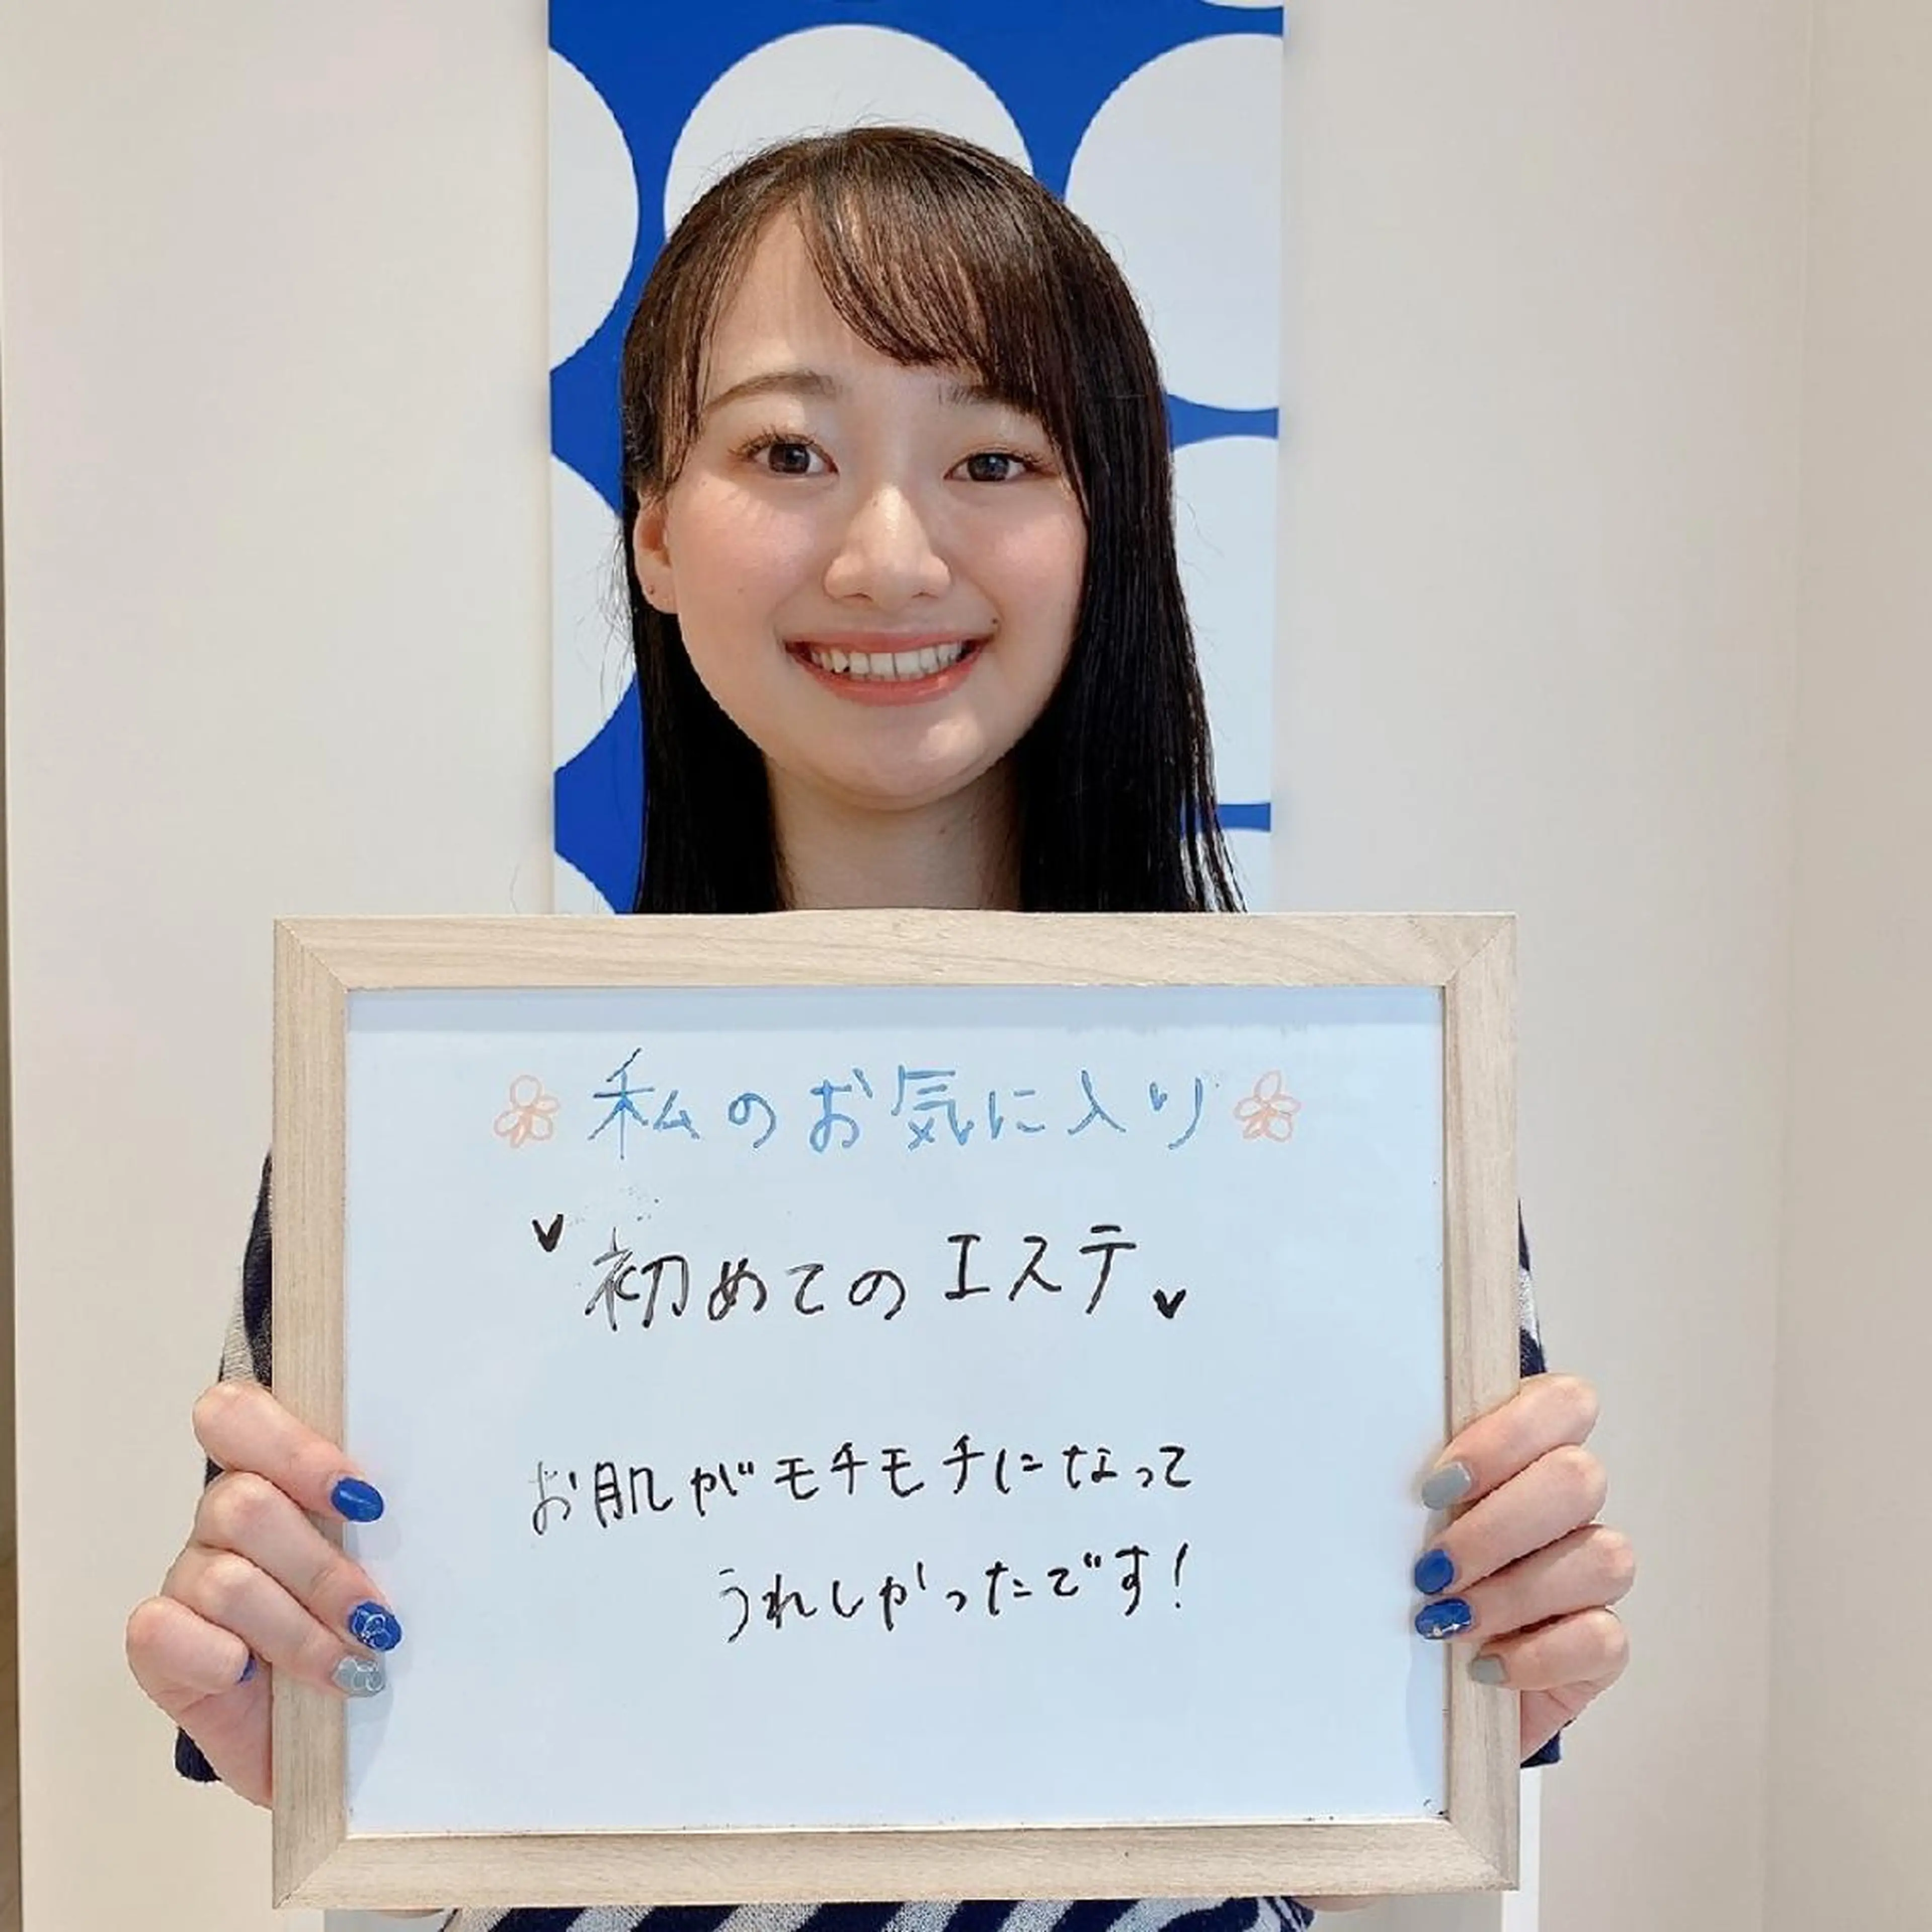 私のお気に入り
初めてのエステ
お肌がモチモチになって
うれしかったです!